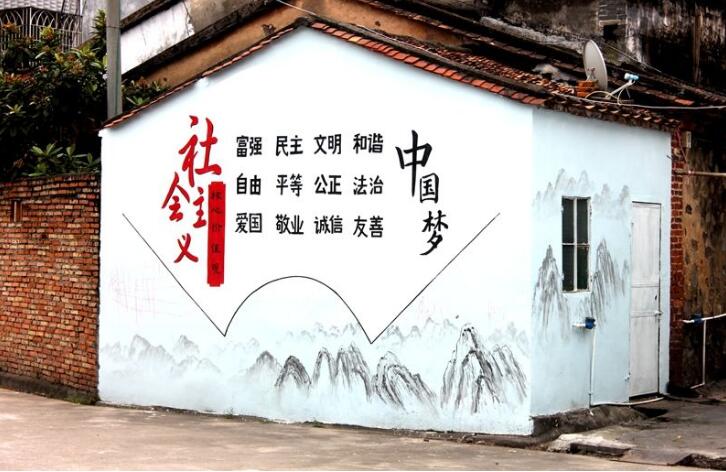 社会主义
核心价值观
富强 民主 文明 和谐
自由 平等 公正 法治
爱国 敬业 诚信 友善
中国梦